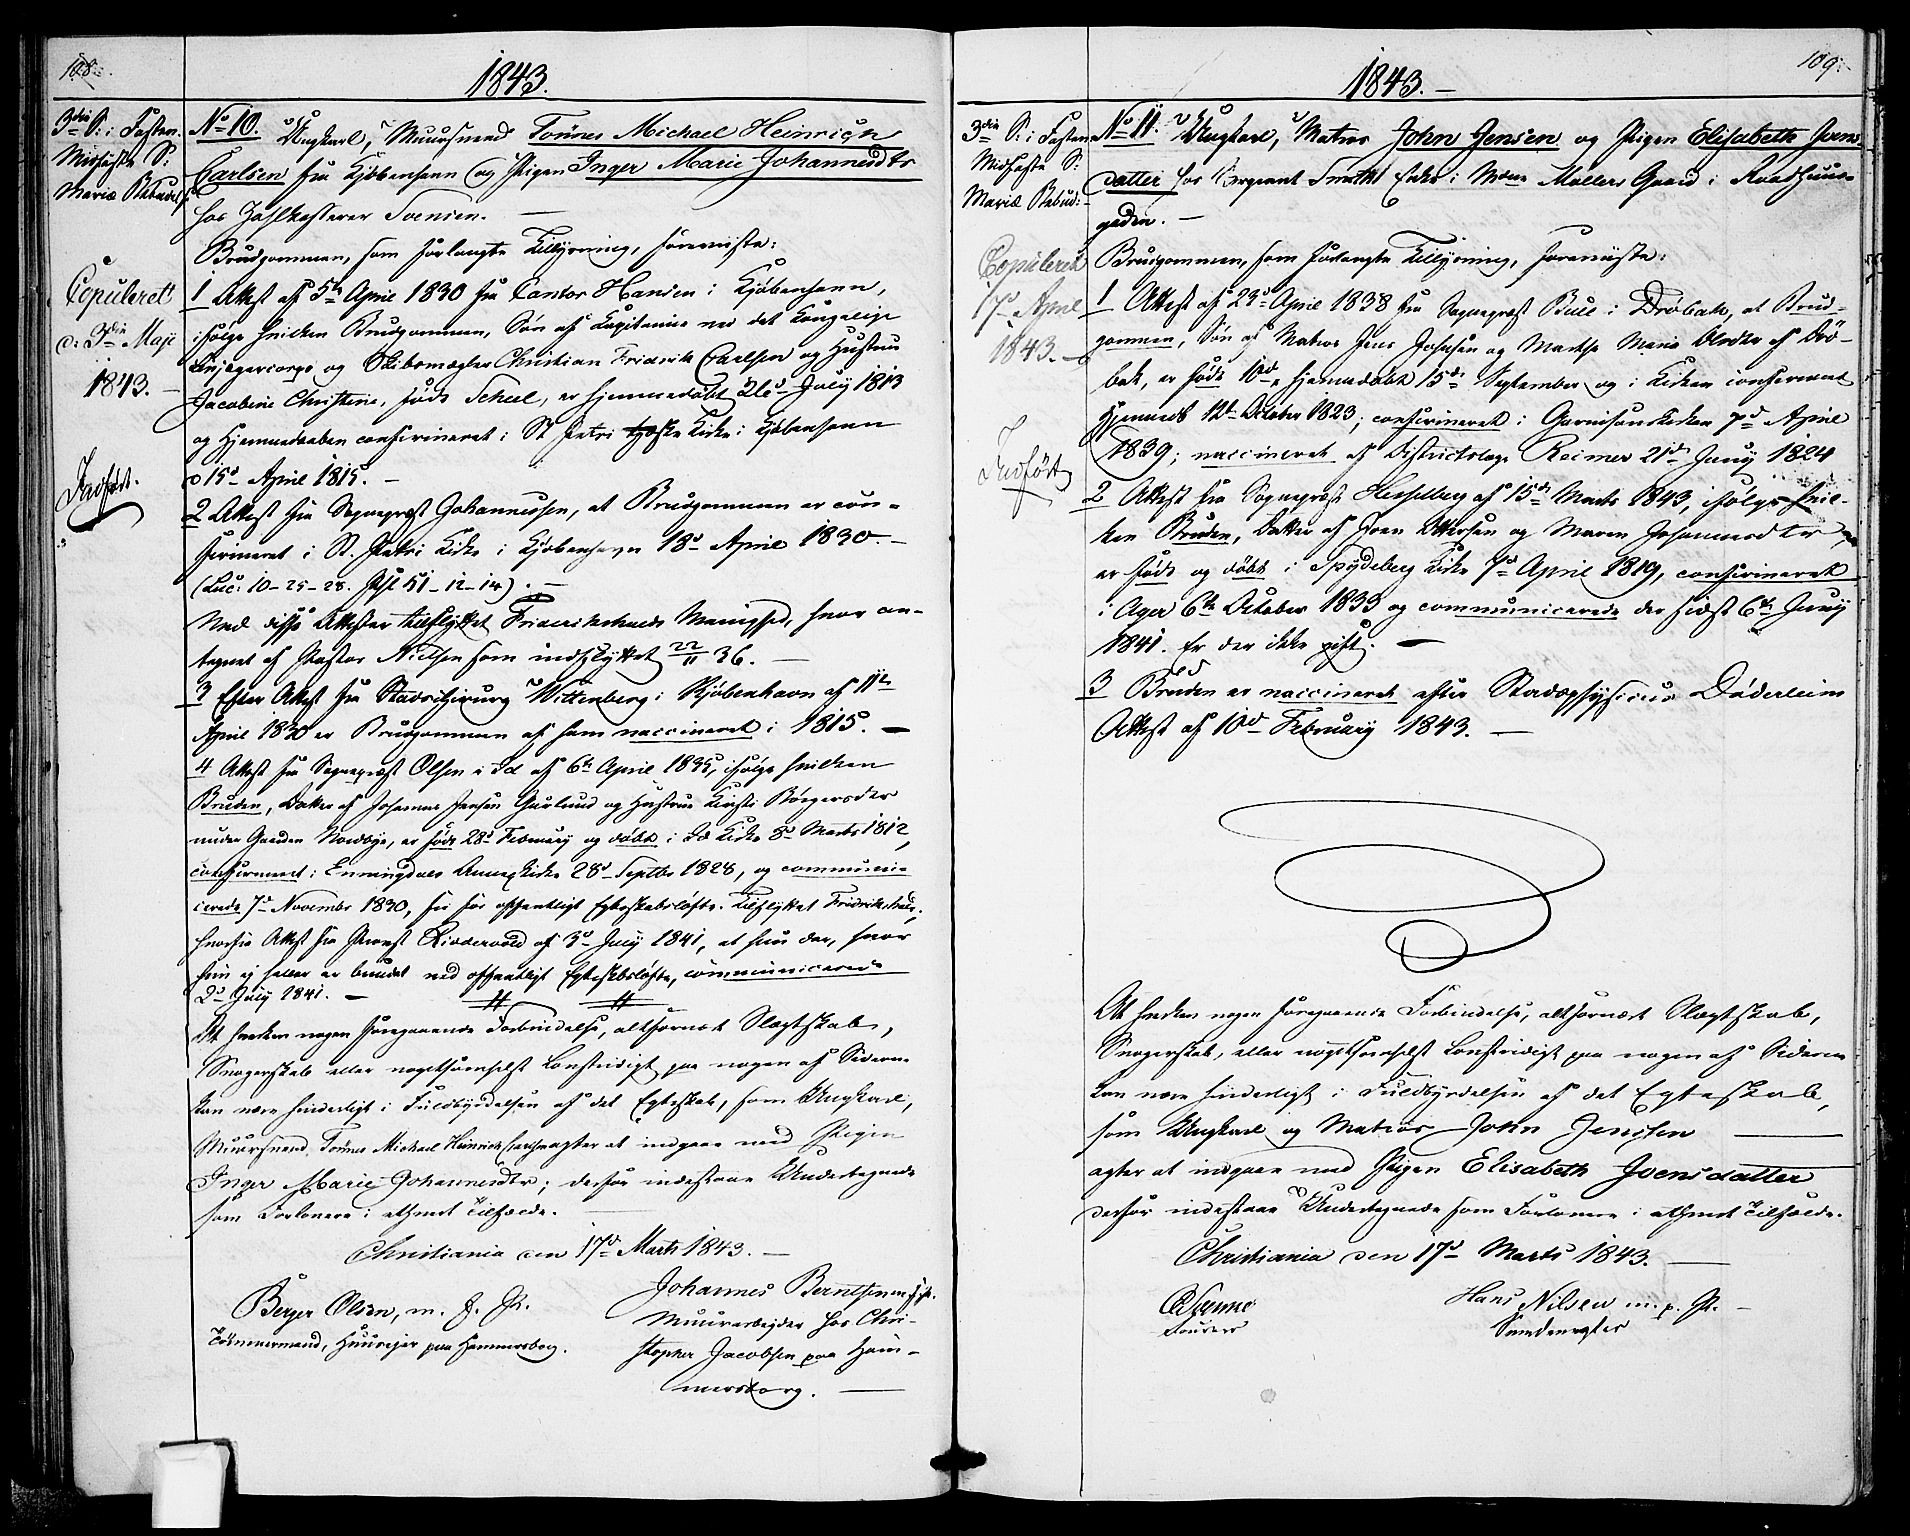 108.
1843.
3die S: i Fasten.
Midfaste S:
Mariæ Bebudels:
Copuleret
d. 3die Maji
1843. –
Indført.
No 10. Ungkarl, Muursvend Tønnes Michael Heinrich
Carlsen fra Kjøbenhavn og Pigen Inger Marie Johannesdtr
hos Zahlkasserer Svensen. —
Brudgommen, som forlangte Tillysning, foreviiste:
1 Attest af 5te April 1830 fra Cantor Hansen i Kjøbenhavn,
ifølge hvilken Brudgommen, Søn af Kapitaine ved det Kongelige
Livjægercorps og Skibsmægler Christian Fridrik Carlsen og Hustru
Jacobine Christine, født Scheel, er hjemmedøbt 21de July 1813
og Hjemmedaaben confirmeret i St Petri tydske Kirke i Kjøbenhavn
d 15de April 1815. –
2 Attest fra Sognepræst Johannessen, at Brudgommen er con-
firmeret i St. Petri Kirke i Kjøbenhavn 18de April 1830. –
(Luc: 10-25-28. Ps 51-12-14). –
Med disse Attester tilflyttet Friderikshalds Menighed, hvor an-
tegnet af Pastor Nielsen som indflyttet 22/11 36. —
3 Efter Attest fra Stadschirurg Wittenberg i Kjøbenhavn af 11te
April 1830 er Brudgommen af ham vaccineret i 1815. —
4 Attest fra Sognepræst Olsen i Id af 6te April 1835, ifølge hvilken
Bruden, Datter af Johannes Jensen Gaulund og Hustrue Kirsti Børgersdtr
under Gaarden Nordbye, er født 28de February og døbt i Id Kirke 8de Marts 1812,
confirmeret i Enningdals Annexkirke 28de Septbr 1828, og communi-
cerede 7de Novembr 1830, fri for offentligt Egteskabsløfte. Tilflyttet Fridrikshald,
hvorfra Attest fra Provst Riddervold af 3de July 1841, at hun der, hvor
hun ej heller er bundet ved offentligt Egteskabsløfte, communicerede
2de July 1841. —
At hverken nogen foregaaende Forbindelse, altfornært Slægtskab,
Svogerskab eller nogetsomhelst Lovstridigt paa nogen af Siderne
kan være hinderligt i Fuldbyrdelsen af det Egteskab, som Ungkarl,
Muursvend Tønnes Michael Heinrich Carlsen agter at indgaae med Pigen
Inger Marie Johannesdtr; derfor indestaae Undertegnede
som Forlovere i ethvert Tilfælde.
Christiania den 17de Marts 1843. —
Berger Olsen, m. f. P.
Tømmermand, Huuseier paa Hammersborg.
Johannes Berntsen m. f. P.
Muurarbeider hos Chri-
stopher Jacobsen paa Ham-
mersborg. —
109.
1843. –
3die S: i Fasten
Midfaste S:
Mariæ Bebud:
Copuleret
17de April
1843. –
Indført
No 11. Ungkarl, Matros John Jensen og Pigen Elisabeth Ivers
datter hos Sergeant Smiths Enke i Mdme Møllers Gaard i Raadhuus-
gaden. —
Brudgommen, som forlangte Tillysning, foreviiste:
1 Attest af 23de April 1838 fra Sognepræst Bull i Drøbak, at Brud-
gommen, Søn af Matros Jens Johnsen og Marthe Marie Olsdtr af Drø-
bak, er født 10de, hjemmedøbt 15de September og i Kirken confirmeret
Hjemmed. 12te October 1823; confirmeret i Garnisonskirken 7de April
1839; vaccineret af Districtslæge Reimer 21de Juny 1824
2 Attest fra Sognepræst Hesselberg af 15de Marts 1843, ifølge hvil-
ken Bruden, Datter af Iver Ottersen og Maren Johannesdtr
er født og døbt i Spydeberg Kirke 7de April 1819, confirmeret
i Ager 6te October 1833 og communicerede der sidst 6te Juny
1841. Er der ikke gift. —
3 Bruden er vaccineret efter Stadsphysicus Døderleins
Attest af 10de February 1843. —
At hverken nogen foregaaende Forbindelse, altfornært Slægtskab,
Svogerskab, eller nogetsomhelst Lovstridigt paa nogen af Siderne
kan være hinderligt i Fuldbyrdelsen af det Egteskab,
som Ungkarl og Matros John Jensen —
agter at indgaae med Pigen Elisabeth Iversdatter
derfor indestaae Undertegnede som Forlovere i ethvert Tilfælde.
Christiania den 17de Marts 1843. —
Hans Nilsen m. p. P. –